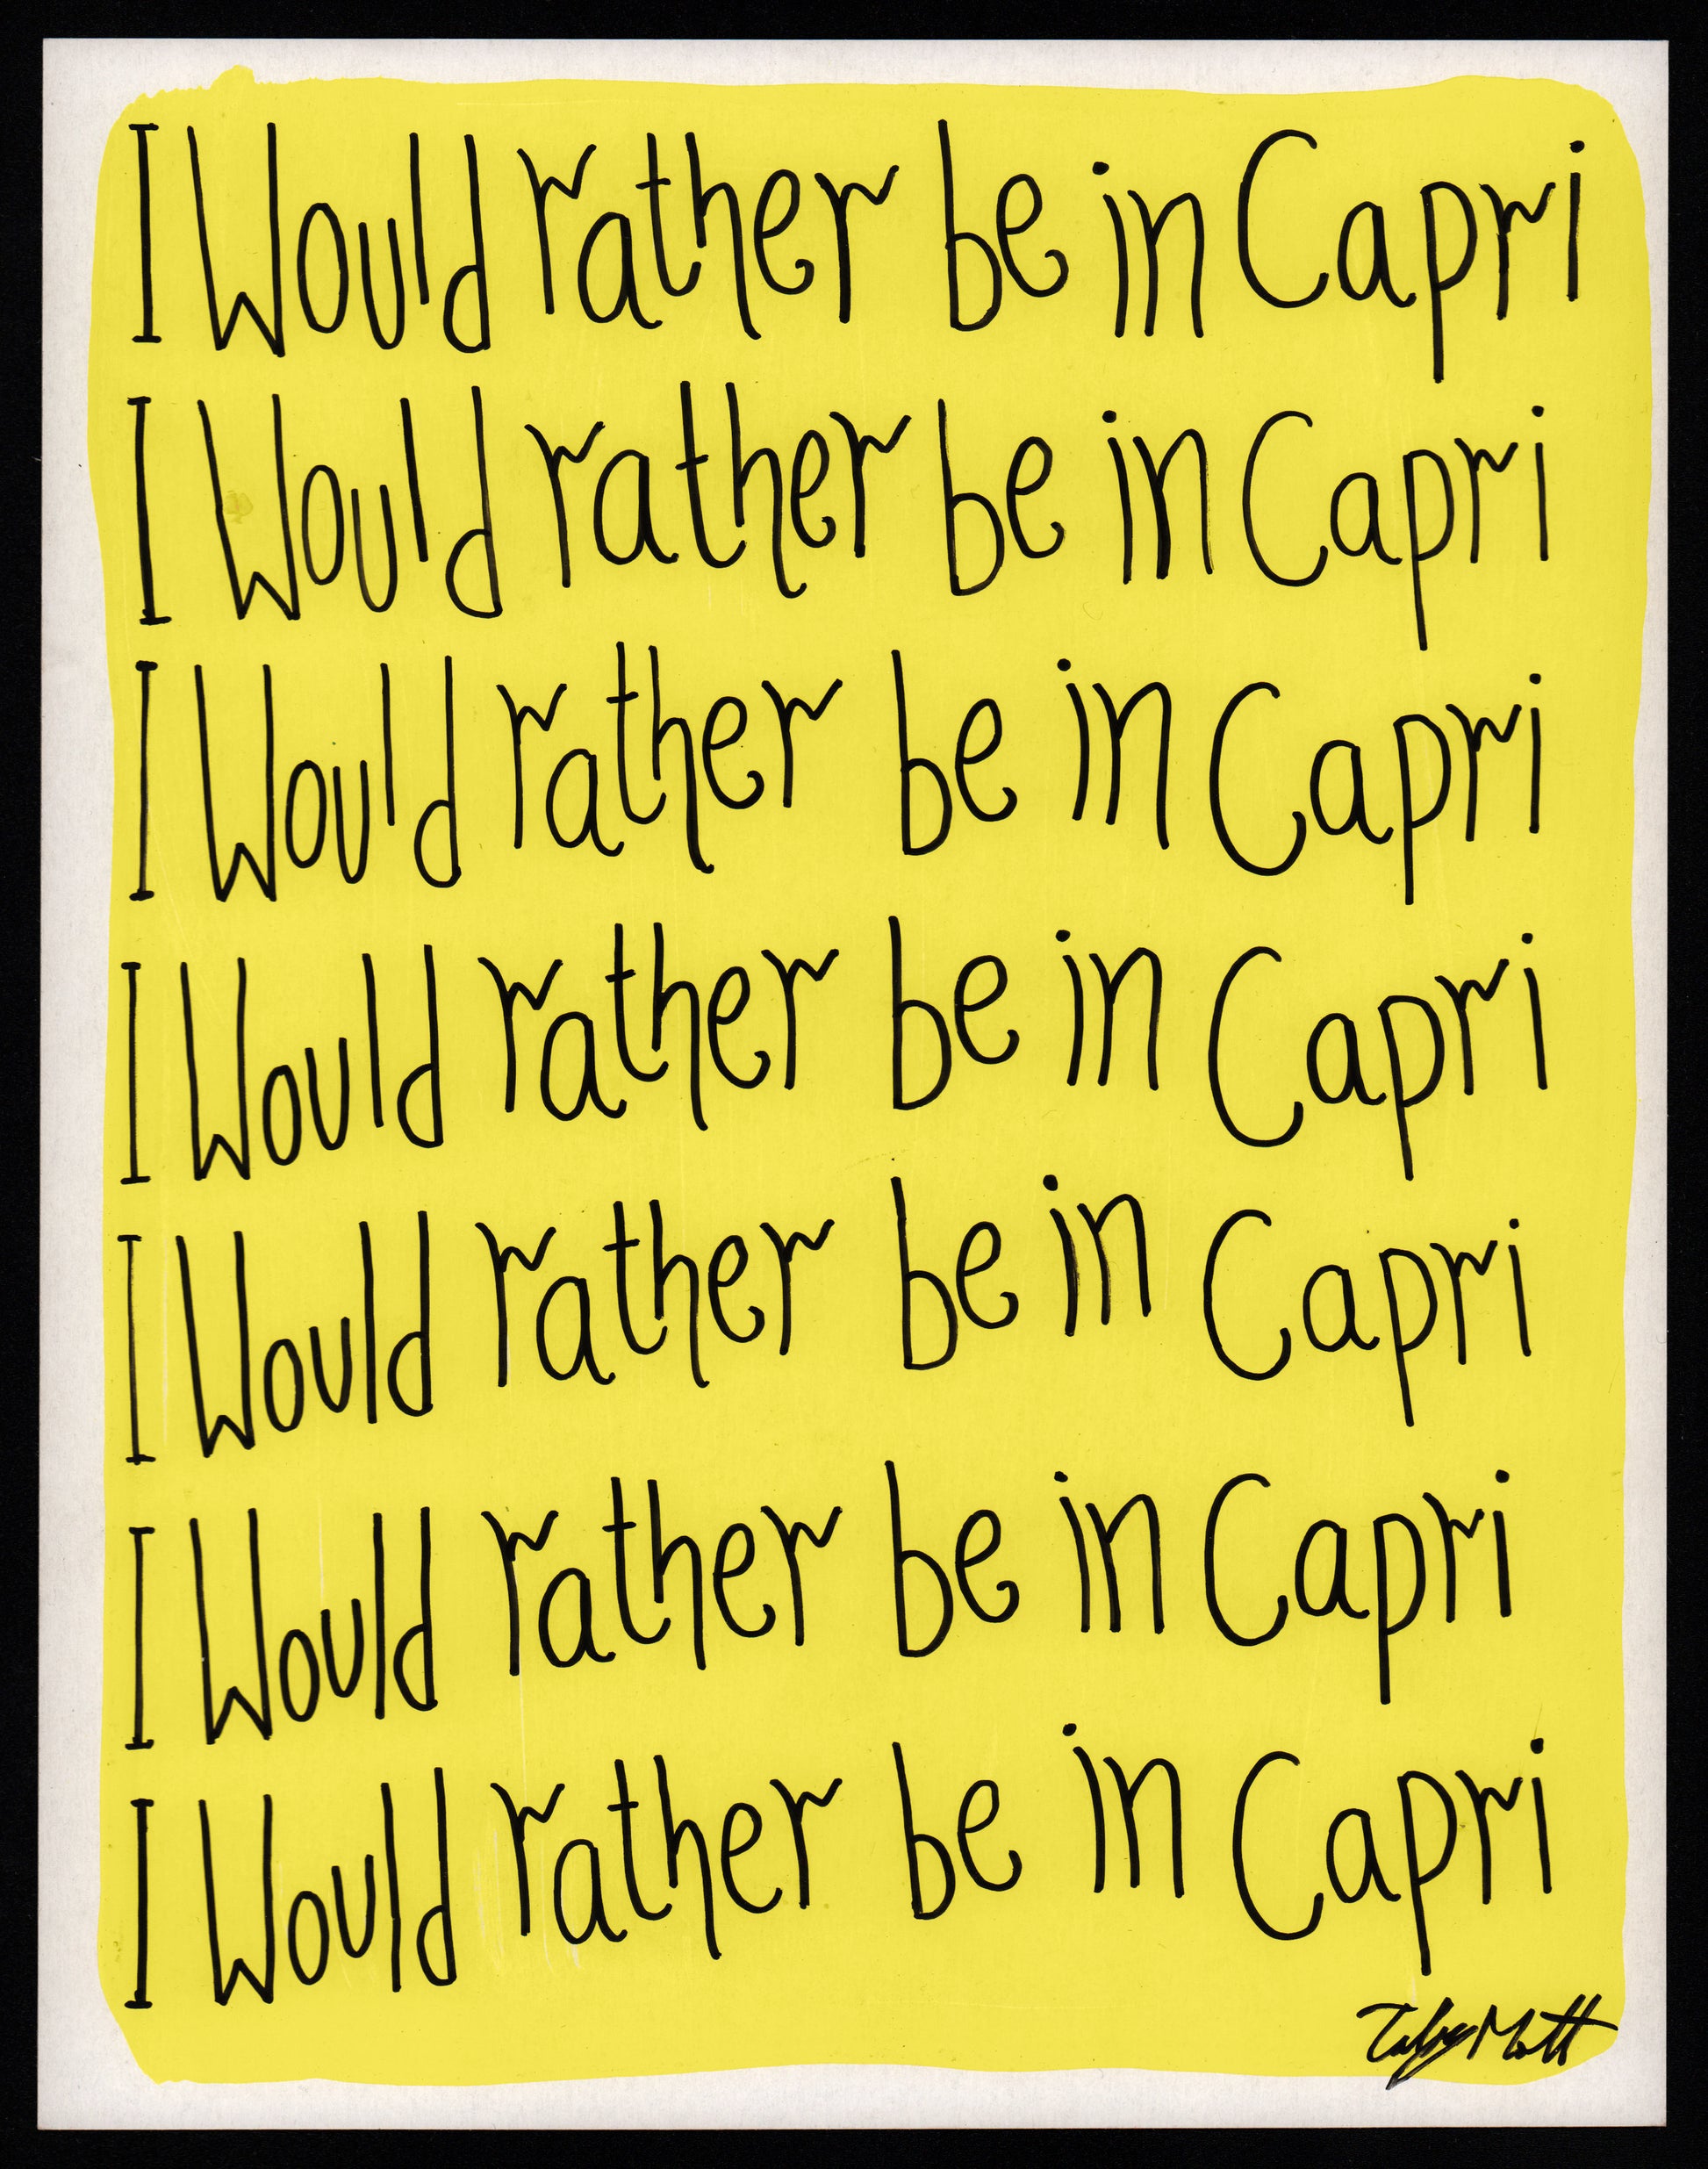 I Would rather be in Capri
I Would rather be in Capri
I Would rather be in Capri
I Would rather be in Capri
I Would rather be in Capri
I Would rather be in Capri
I Would rather be in Capri
Toby Mott